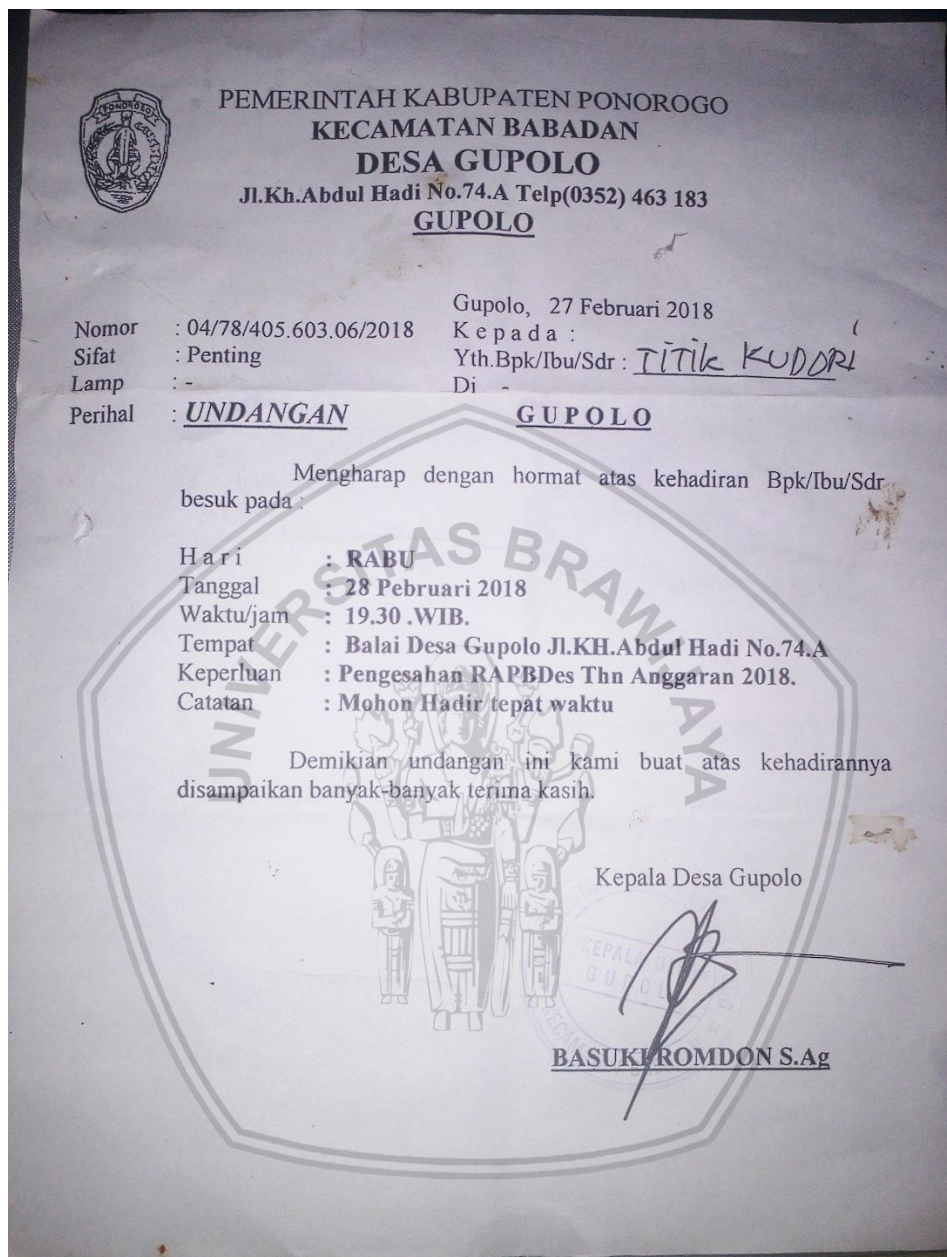 PONOROGO
PEMERINTAH KABUPATEN PONOROGO
KECAMATAN BABADAN
DESA GUPOLO
Jl.Kh.Abdul Hadi No.74.A Telp(0352) 463 183
GUPOLO
Gupolo, 27 Februari 2018
Nomor : 04/78/405.603.06/2018 K e p a d a :
Sifat : Penting Yth.Bpk/Ibu/Sdr : TITIK KUDORI
Lamp : - Di -
Perihal : UNDANGAN G U P O L O
Mengharap dengan hormat atas kehadiran Bpk/Ibu/Sdr
besuk pada :
H a r i : RABU
Tanggal : 28 Pebruari 2018
Waktu/jam : 19.30 .WIB.
Tempat : Balai Desa Gupolo Jl.KH.Abdul Hadi No.74.A
Keperluan : Pengesahan RAPBDes Thn Anggaran 2018.
Catatan : Mohon Hadir tepat waktu
Demikian undangan ini kami buat atas kehadirannya
disampaikan banyak-banyak terima kasih.
Kepala Desa Gupolo
BASUKI ROMDON S.Ag
UNIVERSITAS BRAWIJAYA